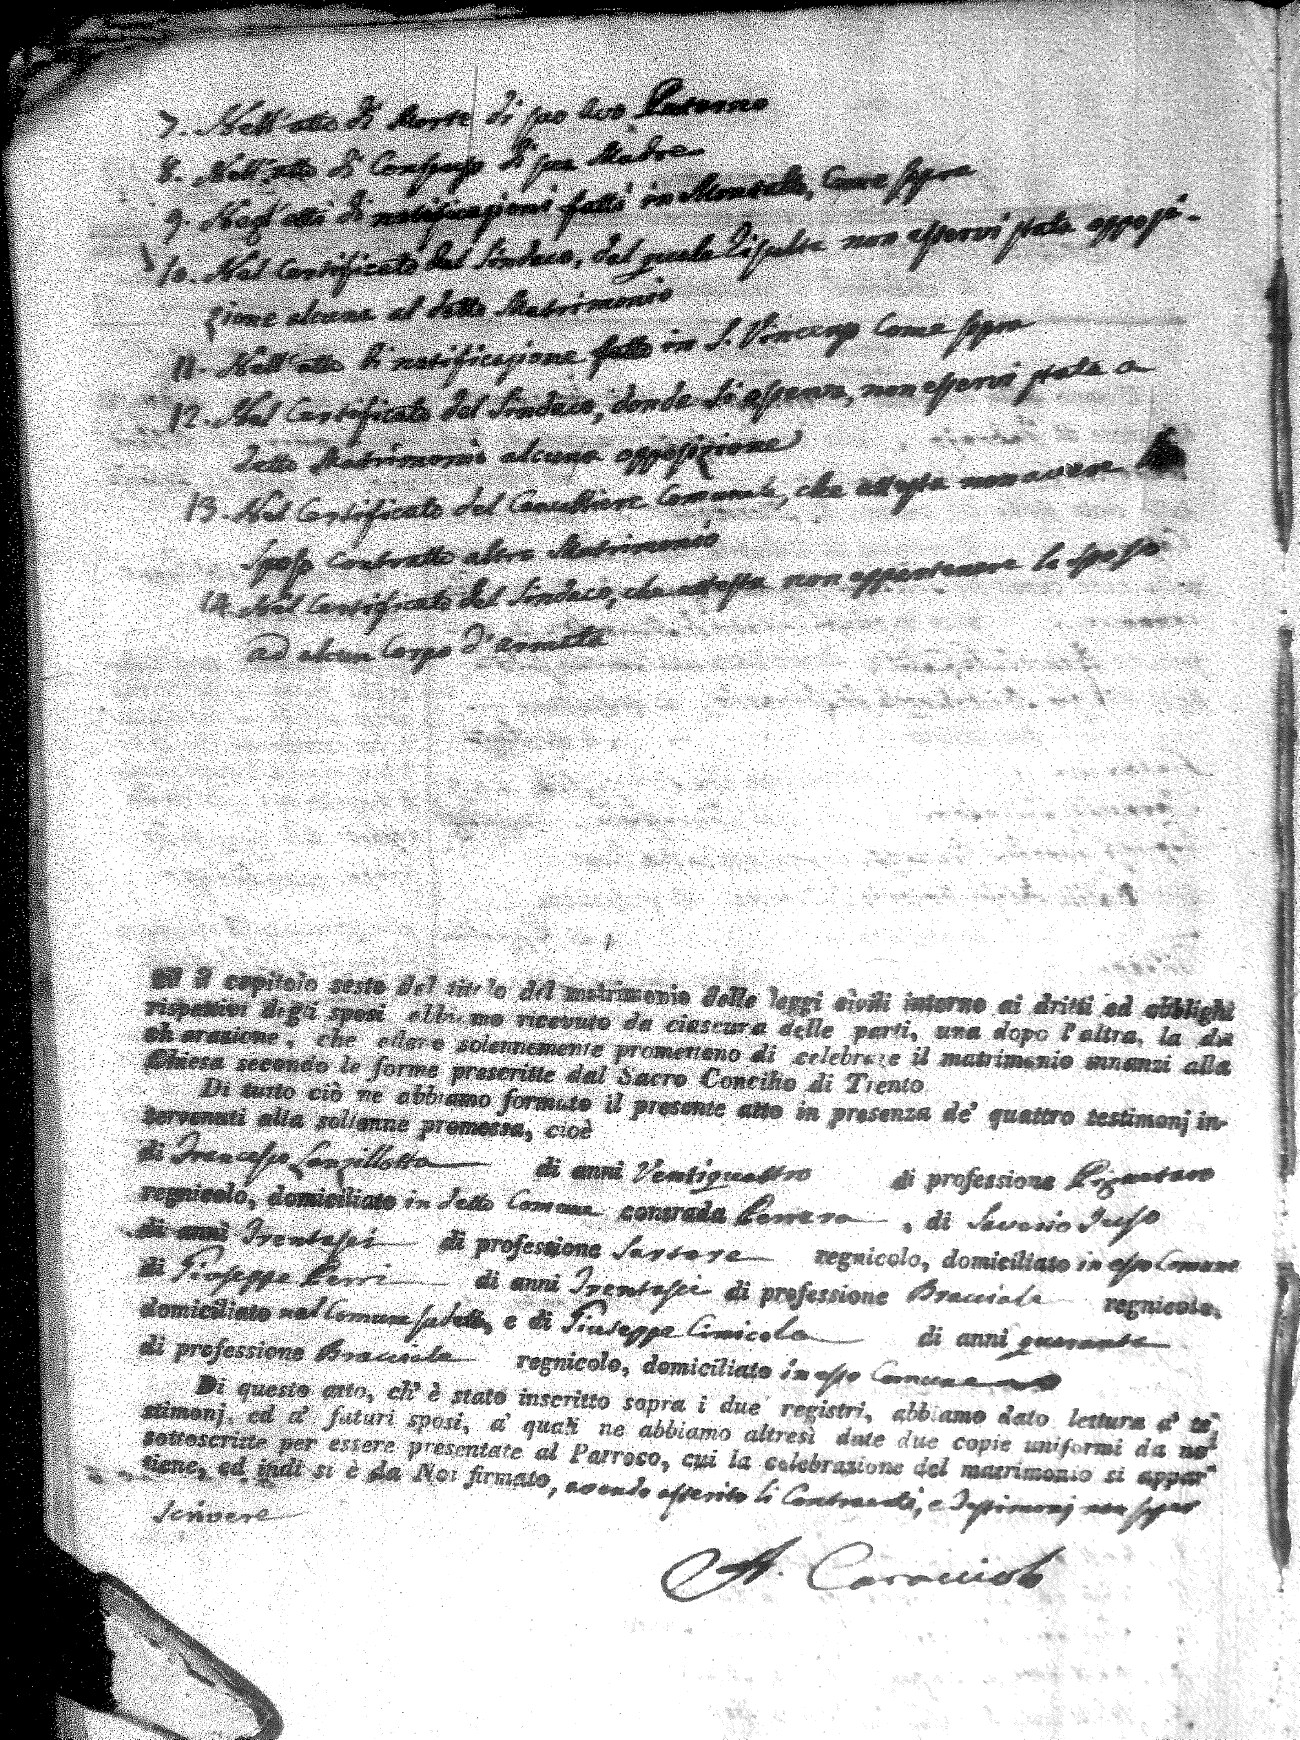 7. Nell'atto di Morte di suo Avo Paterno
8. Nell'atto di Consenso di sua Madre
9. Negl'atti di notificazioni fatti in Montalto, Come sopra
10. Nel Certificato del Sindaco, del quale risulta non esservi stata opposi-
zione alcuna al detto Matrimonio
11. Nell'atto di notificazione fatto in S. Vincenzo Come sopra
12. Nel Certificato del Sindaco, donde si assenza, non esservi stata a
detto Matrimonio alcuna opposizione
13. Nel Certificato del Cancelliere Comunale, che attesta non avere lo
Sposo Contratto altro Matrimonio
14. Nel Certificato del Sindaco, che attesta non appartenere lo sposo
ad alcun Corpo d'armata
Ed il capitolo sesto del titolo del matrimonio delle leggi civili intorno ai dritti ed obblighi
rispettivi degli sposi abbiamo ricevuto da ciascuna delle parti, una dopo l'altra, la di
chiarazione, che elleno solennemente promettono di celebrare il matrimonio innanzi alla
Chiesa secondo le forme prescritte dal Sacro Concilio di Trento
Di tutto ciò ne abbiamo formato il presente atto in presenza de' quattro testimonj in-
tervenuti alla solenne promessa, cioè
di Francesco Lanzillotta di anni Ventiquattro di professione Pignataro
regnicolo, domiciliato in detto Comune contrada Perrera, di Saverio Fuso
di anni Trentasei di professione Sartore regnicolo, domiciliato in esso Comune
di Giuseppe Perri di anni Trentasei di professione Bracciale regnicolo,
domiciliato nel Comune sudetto, e di Giuseppe Cimicola di anni quaranta
di professione Bracciale regnicolo, domiciliato in esso Comune
Di questo atto, ch' è stato inscritto sopra i due registri, abbiamo dato lettura a' te
stimonj, ed a' futuri sposi, a' quali ne abbiamo altresì date due copie uniformi da noi
sottoscritte per essere presentate al Parroco, cui la celebrazione del matrimonio si appar
tiene, ed indi si è da Noi firmato, avendo asserito li Contraenti, e Testimonj non saper
scrivere
A. Caracciolo